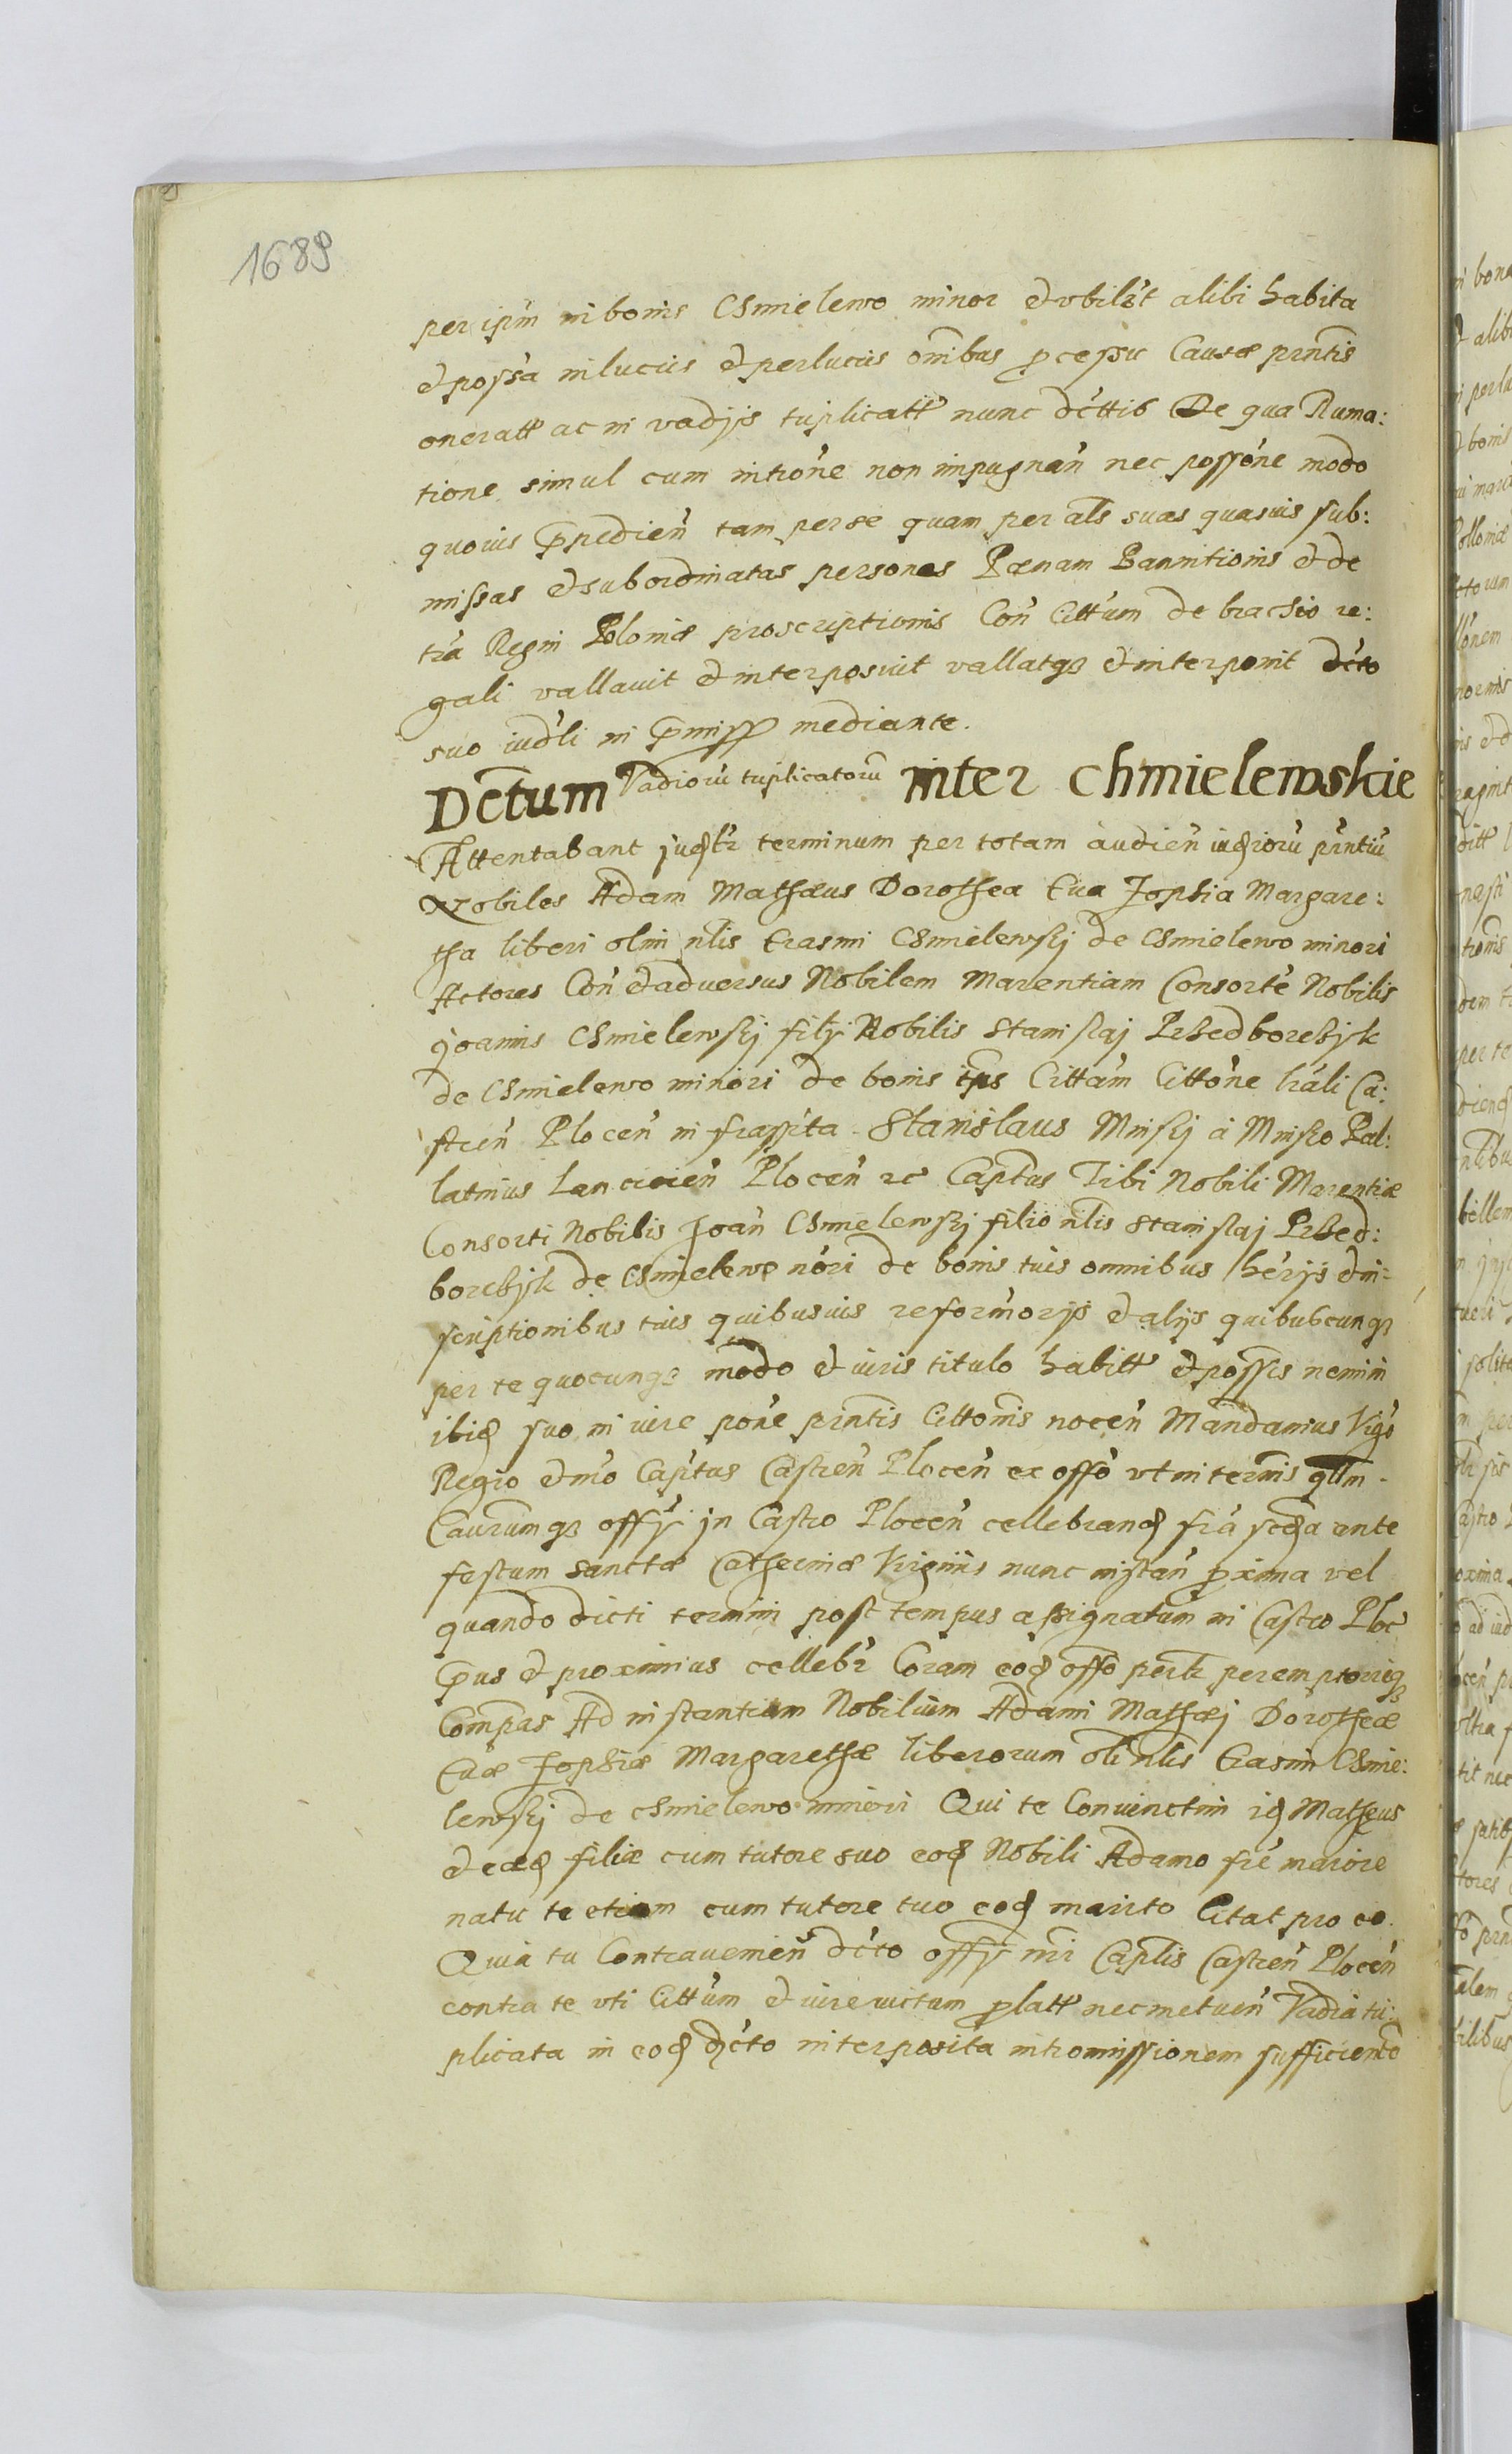 1689
per ipm in bonis Chmielewo minor et vbilbt alibi habita
et possa in lucris et perlucris omibus pcessu Causæ prntis
oneratt ac in vadijs triplicatt nunc dcttis De qua Ruma:
tione simul cum introne non impugnan nec possone modo
quouis prpedien tam per se quam per als suas quasuis sub:
missas et subordinatas personas Pœnam Bannitionis et de
tra Regni Poloniæ proscriptionis Con Cittum de brachio re:
gali vallauit et interposuit vallatqz et interponit dcto
suo iudli in pmiss mediante.
Dctum Vadioru triplicatoru inter Chmielewskie
Attentabant terminum per totam audien prntiu
Nobiles Adam Mathæus Dorothea Eua Zophia Margare:
tha liberi olim nlis Erasmi Chmielewskj de Chmielewo minori
Actores Con et aduersus Nobilem Marentiam Consorte Nobilis
Joannis Chmielewskj filij Nobilis Stanislaj Przedborczyk
de Chmielewo minori de bonis ips Cittam Cittone lrali Ca:
stren Plocen infrassita. Stanislaus Minskj à Minsko Pal:
latinus Lancicien Plocen rc Captus Tibi Nobili Marentiæ
Consorti Nobilis Joan Chmielewskj filio nlis Stanislaj Przed:
borczyk de Chmielewo nori de bonis tuis omnibus hêrijs et in:
scriptionibus tuis quibusuis reformorijs et alijs quibuscunqz
per te quocunqz modo et iuris titulo habitt et possis nemini
ibid suo in iure pone prntis Cittonis nocen Mandamus Vigo
Regio et mo Captus Castren Plocen ex offo vt in termis qllm
Caurumqz offy in Castro Plocen cellebrand fra scda ante
festum Sanctæ Catherinæ Virginis nunc instan proxima vel
quando dicti termini post tempus assignatum in Castro Ploc
prius et proximius cellebr Coram eod offo perlr peremptorieqz
Compas Ad instantiam Nobilium Adami Mathæj Dorotheæ
Euæ Zophiæ Margarethæ liberorum oli nlis Erasmi Chmie:
lewskj de Chmielewo minori Qui te Conuinctim id Matheus
et eæd filiæ cum tutore suo eod Nobili Adamo fre maiore
natu te etiam cum tutore tuo eod marito Citat pro eo.
Quia tu Contrauenien dcto offy nri Caplis Castren Plocen
contra te vti Cittum et iure uictam platt nec metuen Vadia tri:
plicata in eod dcto interposita intromissionem sufficiente